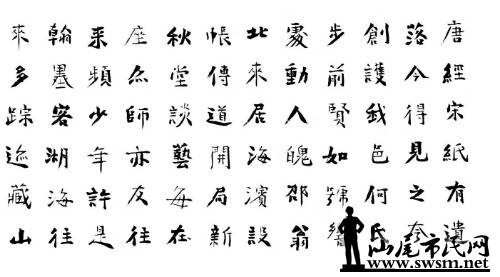 唐經宋紙有遺
落今得見之
創護我色何氏
步前賢如號
處動人魄邵翁
北來居海濱設
帳傳道開局新
秋堂談藝每在
座師亦友往
来頻少年許是
翰墨客湖海往
來多踪迹藏山
汕尾市民网
www.swsm.net